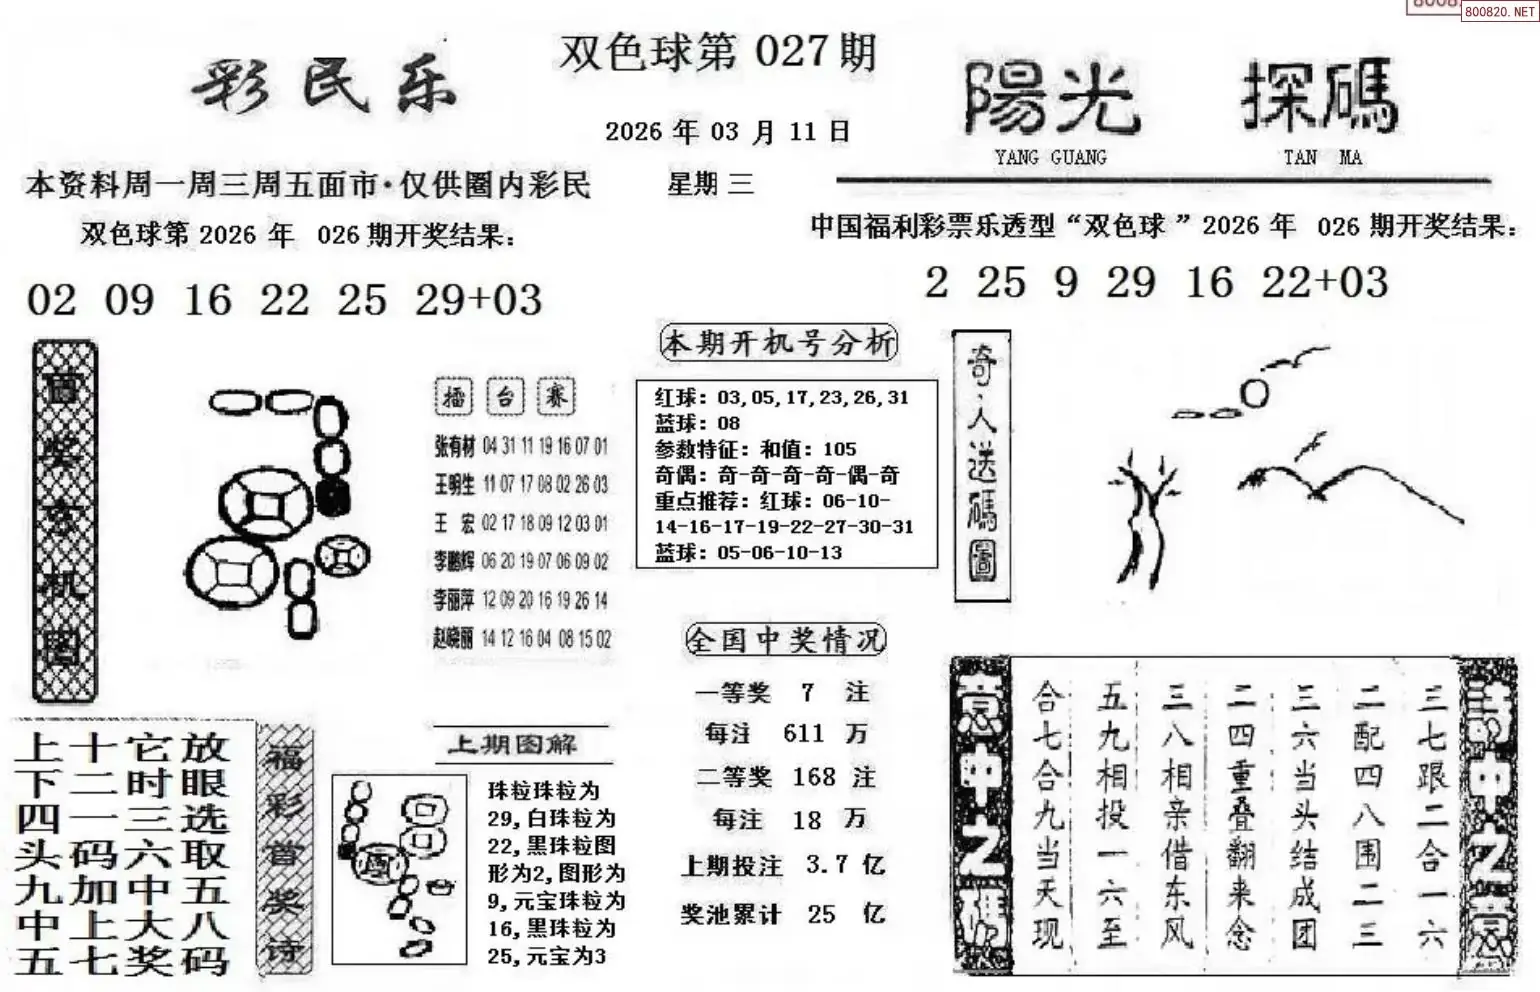 800820.NET
彩民乐
双色球第 027 期
2026 年 03 月 11 日
星期 三
陽光 探碼
YANG GUANG TAN MA
本资料周一周三周五面市·仅供圈内彩民
双色球第 2026 年 026 期开奖结果:
02 09 16 22 25 29+03
中国福利彩票乐透型“双色球”2026 年 026 期开奖结果:
2 25 9 29 16 22+03
擂台赛
张有材 04 31 11 19 16 07 01
王明生 11 07 17 08 02 26 03
王 宏 02 17 18 09 12 03 01
李鹏辉 06 20 19 07 06 09 02
李丽萍 12 09 20 16 19 26 14
赵晓丽 14 12 16 04 08 15 02
本期开机号分析
红球: 03,05,17,23,26,31
蓝球: 08
参数特征: 和值: 105
奇偶: 奇-奇-奇-奇-偶-奇
重点推荐: 红球: 06-10-
14-16-17-19-22-27-30-31
蓝球: 05-06-10-13
奇人送碼圖
全国中奖情况
一等奖 7 注
每注 611 万
二等奖 168 注
每注 18 万
上期投注 3.7 亿
奖池累计 25 亿
福彩首奖诗
放眼选取五八码
它时三六中大奖
十二一码加上七
上下四头九中五
上期图解
珠粒珠粒为
29,白珠粒为
22,黑珠粒图
形为2,图形为
9,元宝珠粒为
16,黑珠粒为
25,元宝为3
诗中之意
三七跟二合一六
二配四八围二三
三六当头结成团
二四重叠翻来念
三八相亲借东风
五九相投一六至
合七合九当天现
意中之神